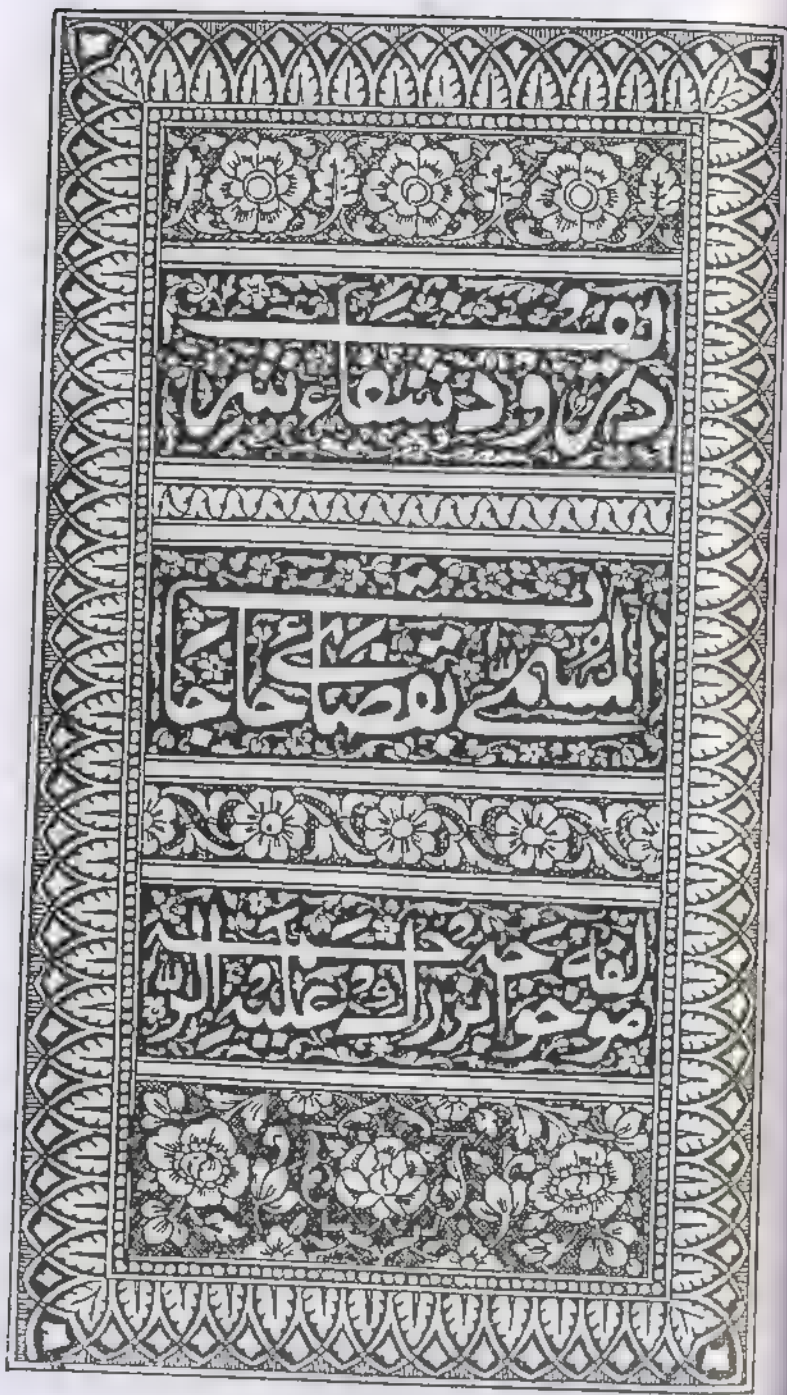 درود شفاء شریف
المسمّٰی بقضائے حاجات
مولفہ خواجہ بزرگ علیہ الرحمۃ